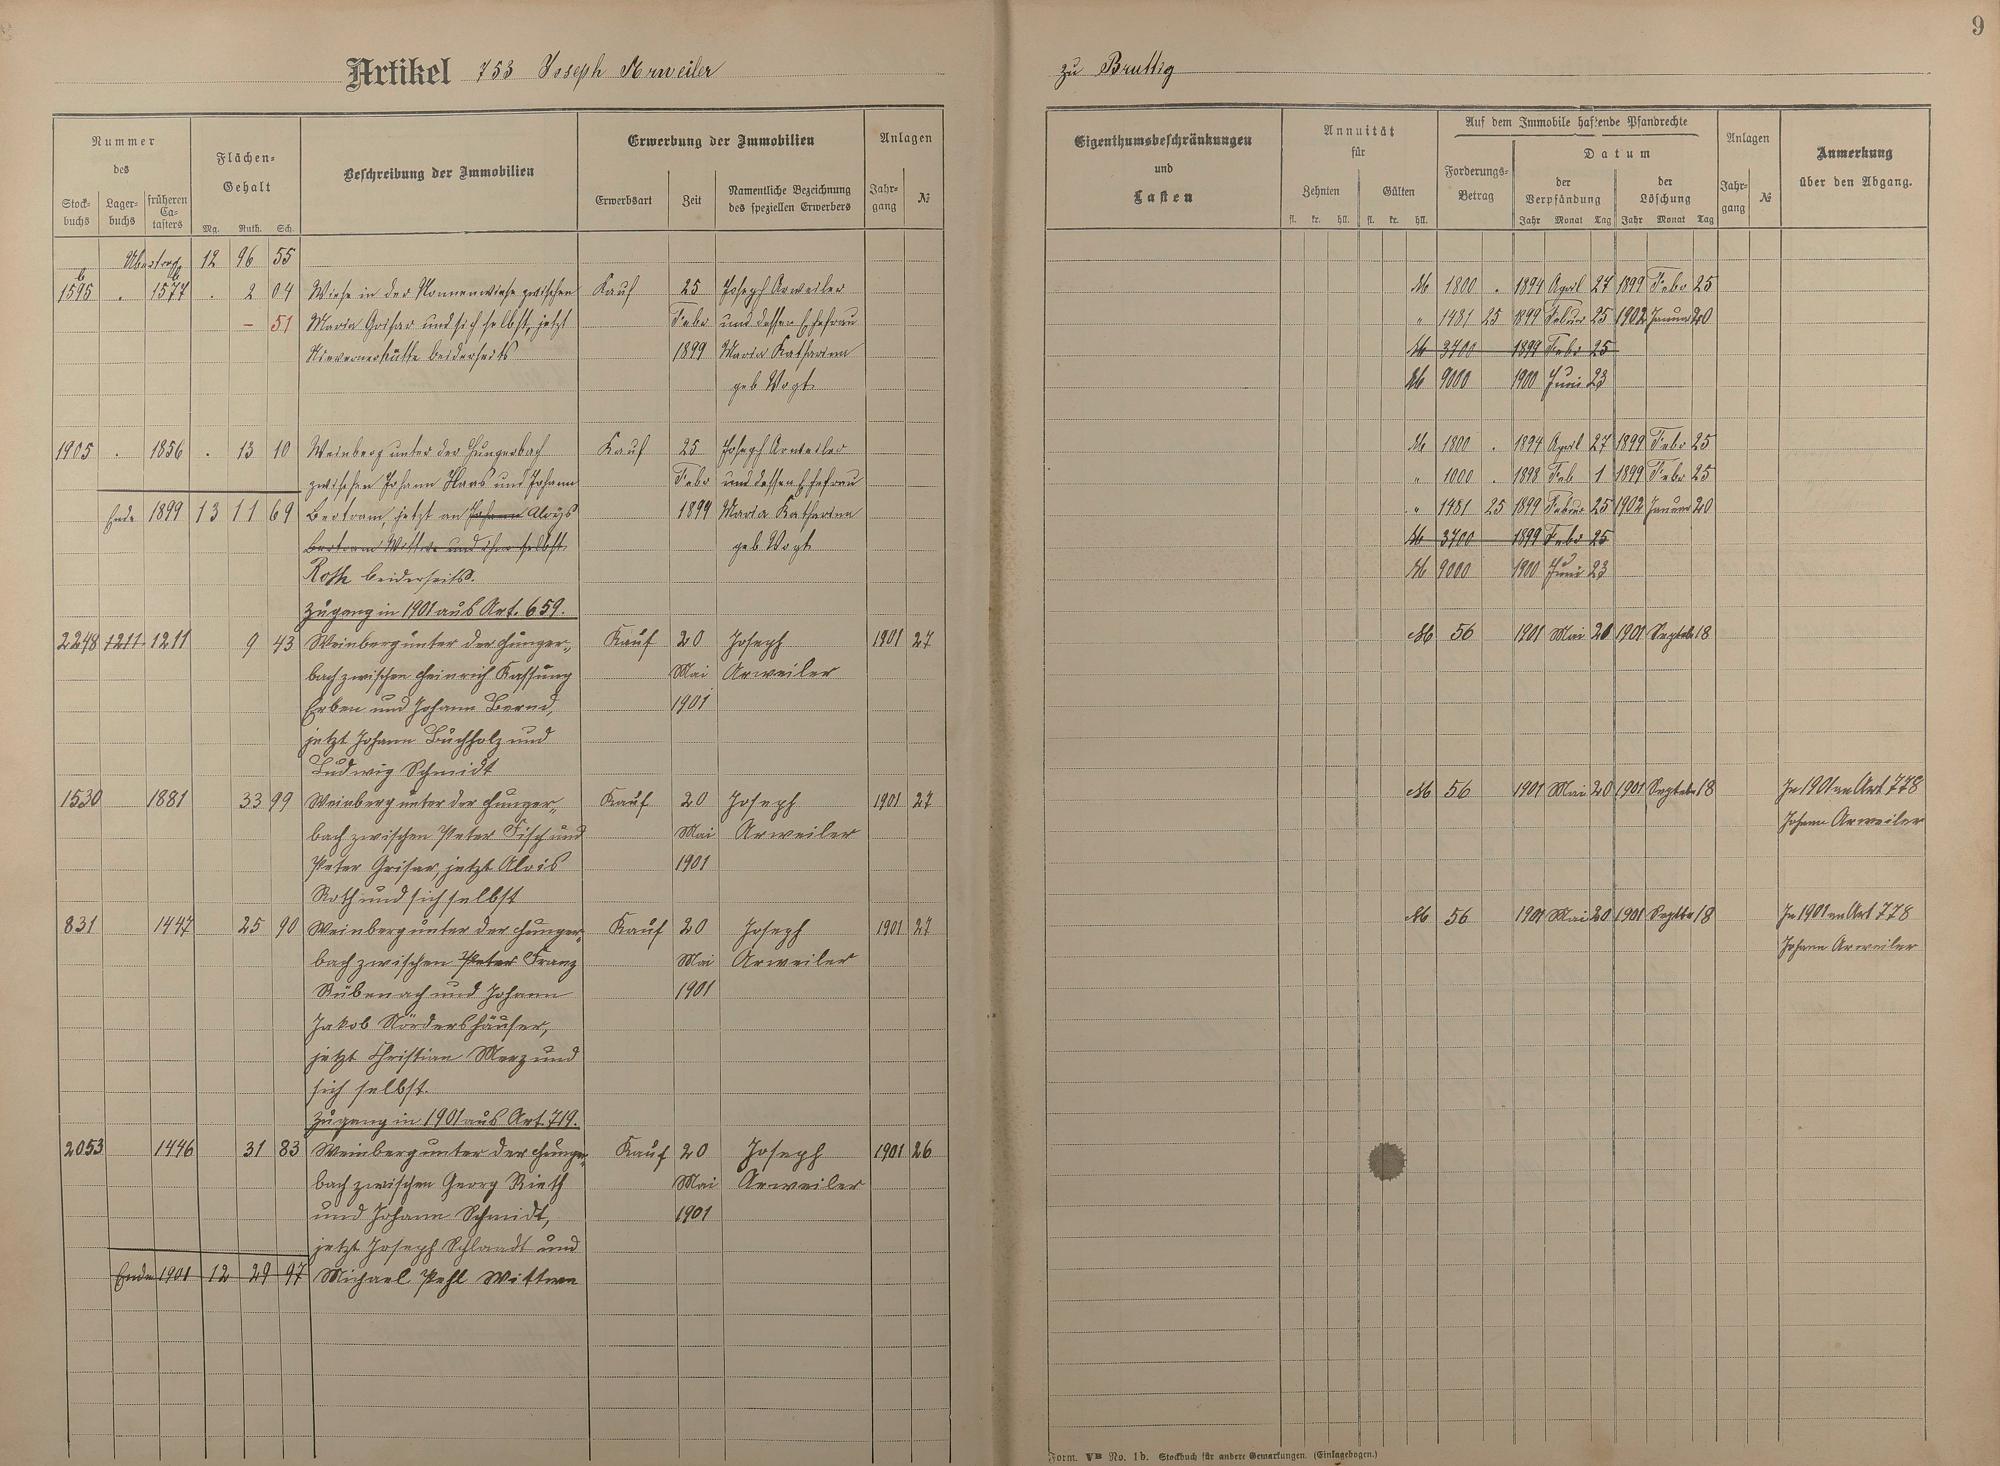 9
Artikel 753 Joseph Arweiler
zu Bruttig
Nummer
des
Stock-
buchs
Lager-
buchs
früheren
Ca-
tasters
Flächen-
Gehalt
Mg. Ruth. Sch.
Beschreibung der Immobilien
Erwerbung der Immobilien
Erwerbsart
Zeit
Namentliche Bezeichnung
des speziellen Erwerbers
Anlagen
Jahr-
gang
№
Übertrag 12 96 55
b b
1595 . 1577 . 2 04 Wiese in der Nonnenwiese zwischen Kauf 25 Joseph Arweiler
– 51 Maria Grisar und sich selbst, jetzt Febr und dessen Ehefrau
Nievernerhütte beiderseits 1899 Maria Katharina
geb Vogt
1905 . 1856 . 13 10 Weinberg unter der Hungerbach Kauf 25 Joseph Arweiler
zwischen Johann Haas und Johann Febr und dessen Ehefrau
Ende 1899 13 11 69 Bertram, jetzt an Johann Aloys 1899 Maria Katharina
Bertram Wittwe und ihm selbst geb Vogt
Roth beiderseits.
Zugang in 1901 aus Art. 659.
2248 1211 1211 9 43 Weinberg unter der Hunger- Kauf 20 Joseph 1901 27
bach zwischen Heinrich Kassung Mai Arweiler
Erben und Johann Bernd, 1901
jetzt Johann Buchholz und
Ludwig Schmidt
1530 1881 33 99 Weinberg unter der Hunger- Kauf 20 Joseph 1901 27
bach zwischen Peter Fisch und Mai Arweiler
Peter Grisar, jetzt Alois 1901
Roth und sich selbst
831 1447 25 90 Weinberg unter der Hunger- Kauf 20 Joseph 1901 27
bach zwischen Peter Franz Mai Arweiler
Rübenach und Johann 1901
Jakob Nördershäuser,
jetzt Christian Merz und
sich selbst.
Zugang in 1901 aus Art. 719.
2053 1446 31 83 Weinberg unter der Hunger- Kauf 20 Joseph 1901 26
bach zwischen Georg Rieth Mai Arweiler
und Johann Schmidt, 1901
jetzt Joseph Schlaadt und
Ende 1901 12 29 97 Michael Pehl Wittwe
Eigenthumsbeschränkungen
und
Lasten
Annuität
für
Zehnten
Gülten
fl. kr. hll. fl. kr. hll.
Auf dem Immobile haftende Pfandrechte
Forderungs-
Betrag
Datum
der
Verpfändung
Jahr Monat Tag
der
Löschung
Jahr Monat Tag
Anlagen
Jahr-
gang
№
Anmerkung
über den Abgang.
M 1800 . 1894 April 27 1899 Febr 25
" 1481 25 1899 Februar 25 1902 Januar 20
M 3700 1899 Febr 25
M 9000 1900 Juni 23
M 1800 . 1894 April 27 1899 Febr 25
" 1000 . 1898 Feb 1 1899 Febr 25
" 1481 25 1899 Februar 25 1902 Januar 20
M 3700 1899 Febr 25
M 9000 1900 Juni 23
M 56 1901 Mai 20 1901 Septbr 18
M 56 1901 Mai 20 1901 Septbr 18 In 1901 an Art 778
Johann Arweiler
M 56 1901 Mai 20 1901 Septbr 18 In 1901 an Art 778
Johann Arweiler
Form. VB No. 1b. Stockbuch für andere Gemarkungen. (Einlagebogen.)